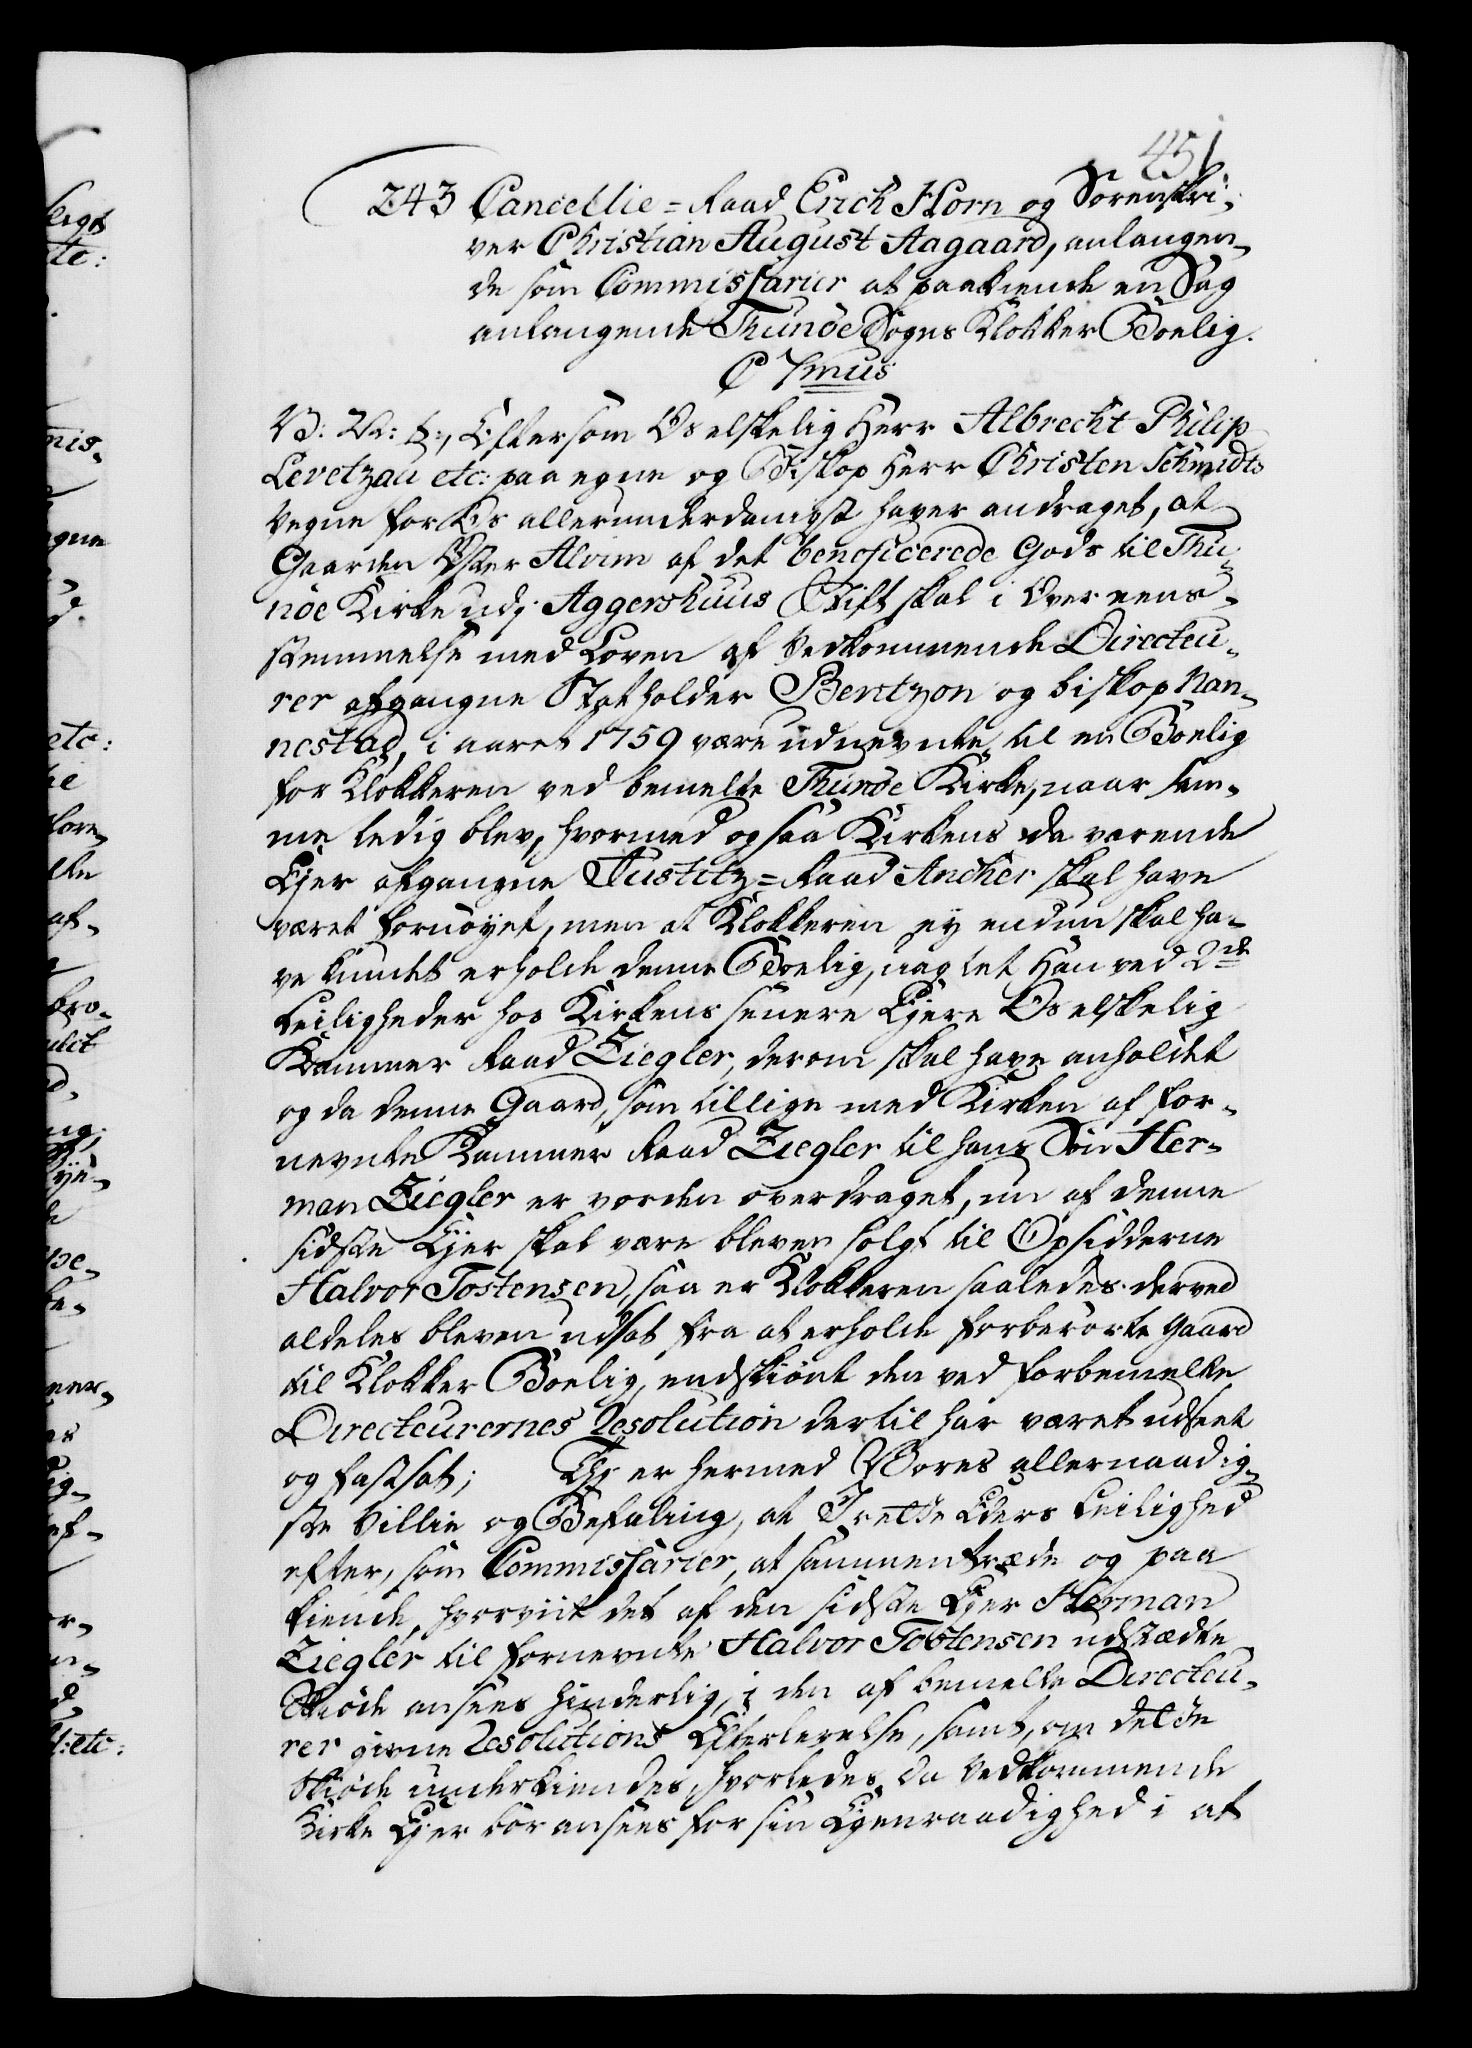 451
243 Cancellie=Raad Erich Horn og Sorenskri-
ver Christian August Aagaard, anlangen-
de som Commissarier at paakiende en Sag
anlangende Thunöe Sogns Klokker Boelig.
C 7mus
V: V: t:, Eftersom Os elskelig Herr Albrecht Philip
Levetzau etc: paa egne og Biskop Herr Christen Schmidts
Vegne for Os allerunderdanigst haver andraget, at
Gaarden Öster Alvim af det beneficerede Gods til Thu-
nöe Kirke udj Aggershuus Stift skal i Overeens-
stemmelse med Loven af Vedkommende Directeu-
rer afgangne Statholder Bentzon og biskop Nan-
nestad, i aaret 1759 være udnevnte til en Boelig
for Klokkeren ved bemelte Thunöe Kirke, naar sam-
me ledig blev, hvormed ogsaa Kirkens da værende
Ejer afgangne Justitz=Raad Ancher skal have
været fornöyet, men at Klokkeren ey endnu skal ha-
ve kundet erholde denne Boelig, uagtet Han ved 2de
Leiligheder hos Kirkens senere Ejere Os elskelig
Kammer Raad Ziegler, derom skal have anholdet
og da denne Gaard, som tillige med Kirken af for-
nevnte Kammer Raad Ziegler til hans Sön Her-
man Ziegler er vorden overdraget, nu af denne
sidste Ejer skal være bleven solgt til Opsidderne
Halvor Tostensen, saa er Klokkeren saaledes derved
aldeles bleven udsat fra at erholde forberörte Gaard
til Klokker Boelig, endskiönt den ved forbemelte
Directeurernes Resolution dertil har været udseet
og fastsat; Thj er hermed Vores allernaadig-
ste Villie og Befaling, at I rette Eders Leilighed
efter, som Commissarier, at sammentræde og paa
kiende, hvorviit det af den sidste Ejer Herman
Ziegler til fornevnte Halvor Tostensen udstædte
Skiöde ansees hinderlig, i den af bemelte Directeu-
rer givne Resolutions Efterlevelse, samt, om dette
Skiöde underkiendes, hvorledes da Vedkommende
Kirke Ejer bör ansees for sin Egenraadighed i at